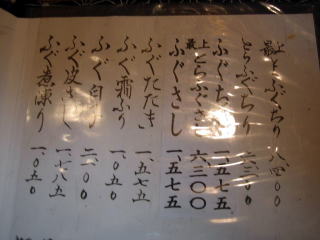 最上とらふぐちり 八四〇〇
とらふぐちり 六三〇〇
ふぐちり 一、五七五
最上とらふぐさし 六三〇〇
ふぐさし 一、五七五
ふぐたたき 一、五七五
ふぐ 一、〇五〇
ふぐ白子 二、一〇〇
ふぐ皮さし 一、七八五
ふぐ煮凍り 一、〇五〇